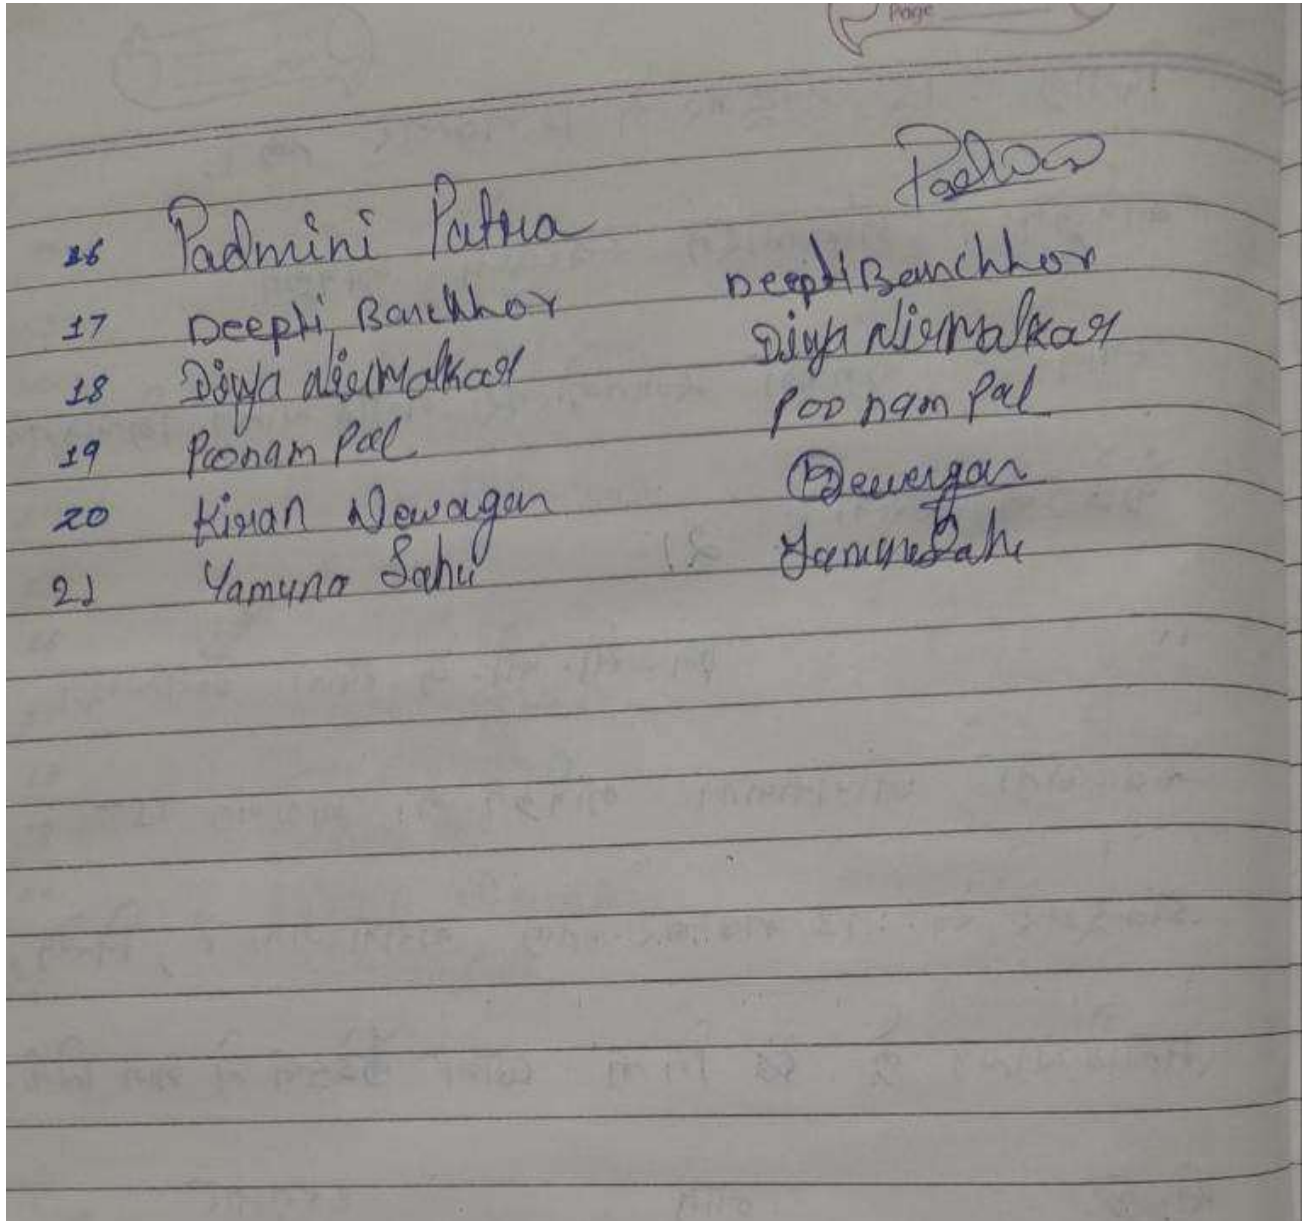 Page
16 Padmini Patra
17 Deepti Banchhor Deepti Banchhor
18 Divya Nirmalkar Divya Nirmalkar
19 Poonam Pal Poonam Pal
20 Kiran Dewagan Dewergan
21 Yamuna Sahu Yamuna Sahu